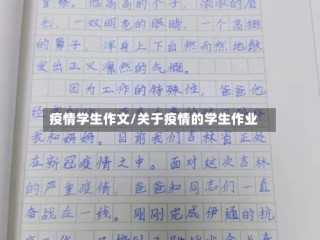 重梁。他高高的个子，浓浓的眉
毛，一双明亮的眼睛，一个高挺
的鼻子，浑身上下自然而然地散
发出正义凛然的气概。
因为工作的特殊性，爸爸他
疫情学生作文/关于疫情的学生作业
我和妈妈。目前我们吉林省正处
在新冠疫情之中。面对这次吉林
的严重疫情，爸爸和同志们一直
奋战在一线。刚刚完成伊通的抗